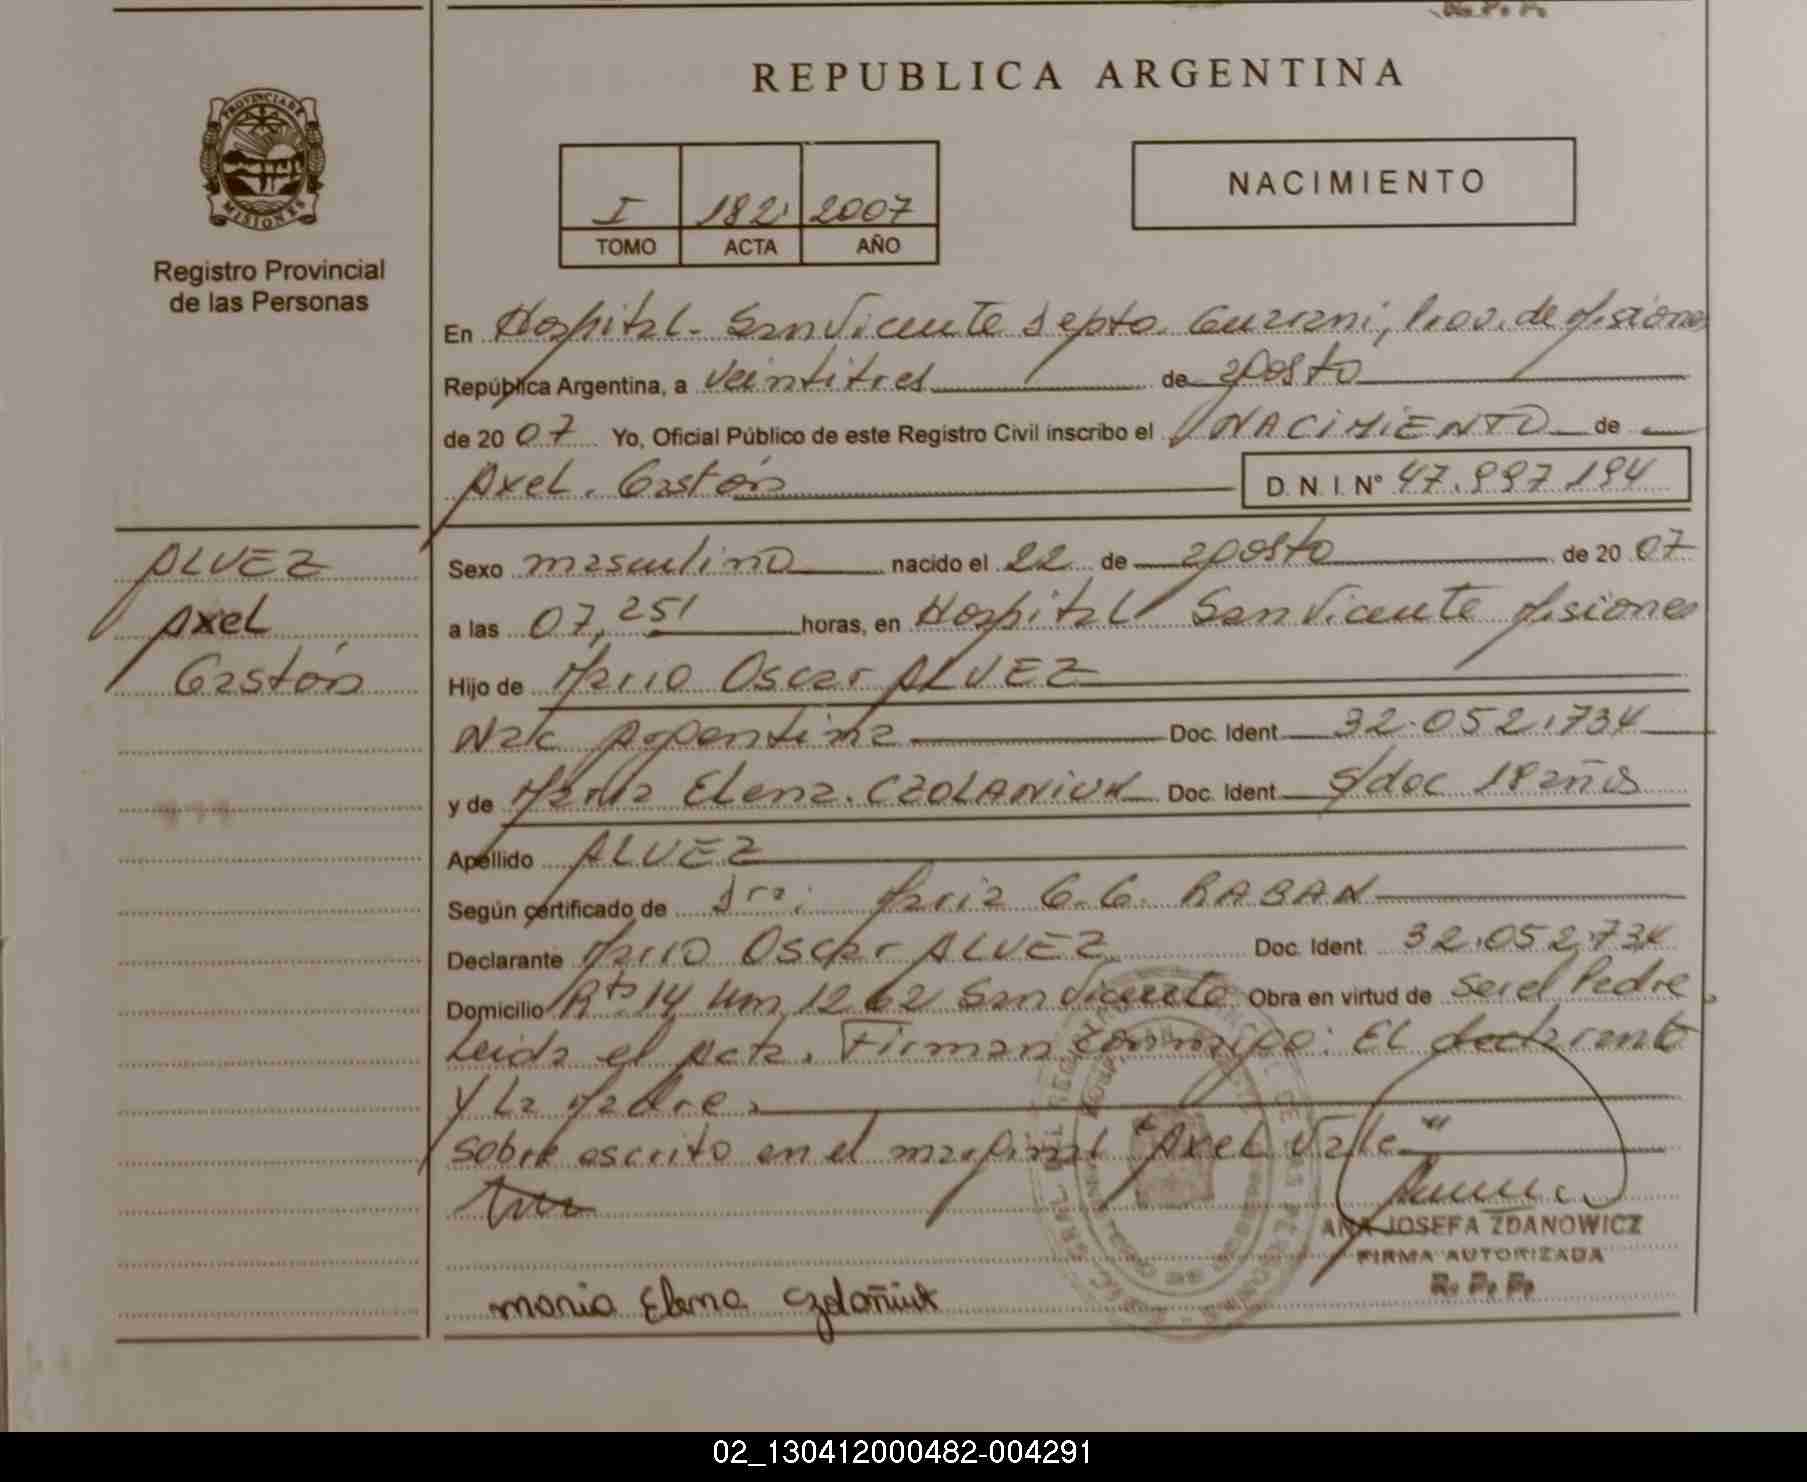 R. P. P.
REPUBLICA ARGENTINA
PROVINCIA DE
MISIONES
Registro Provincial
de las Personas
I 182 2007
TOMO ACTA AÑO
NACIMIENTO
En Hospital - San Vicente Depto. Guarani, Prov. de Misiones
República Argentina, a veintitres de agosto
de 2007 Yo, Oficial Público de este Registro Civil inscribo el NACIMIENTO de
Axel. Gastón D.N.I. N° 47.997.194
ALVEZ
Axel
Gastón
Sexo masculino nacido el 22 de agosto de 2007
a las 07,25 horas, en Hospital San Vicente Misiones
Hijo de Mario Oscar ALVEZ
Nac Argentina Doc. Ident. 32.052.734
y de Maria Elena. CZOLANIUK Doc. Ident. S/doc 18 años
Apellido ALVEZ
Según certificado de Dra: Maria G.G. RABAN
Declarante Mario Oscar ALVEZ Doc. Ident. 32.052.734
Domicilio Rta 14 Km 1262 San Vicente Obra en virtud de Ser el Padre.
Leida el Acta. Firman conmigo: El declarante
y La Madre.
Sobre escrito en el marginal "Axel Vale"
ANA JOSEFA ZDANOWICZ
FIRMA AUTORIZADA
R. P. P.
maria Elena Czolañiuk
02_130412000482-004291